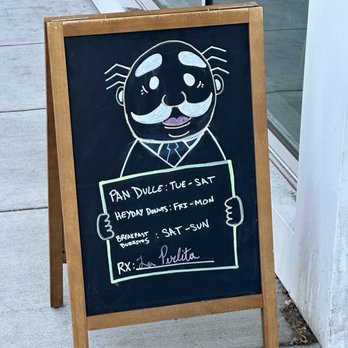 PAN DULLE: TUE-SAT
HEYDAY DONUTS: FRI-MON
BREAKFAST BURRITOS : SAT-SUN
RX: La Perlita